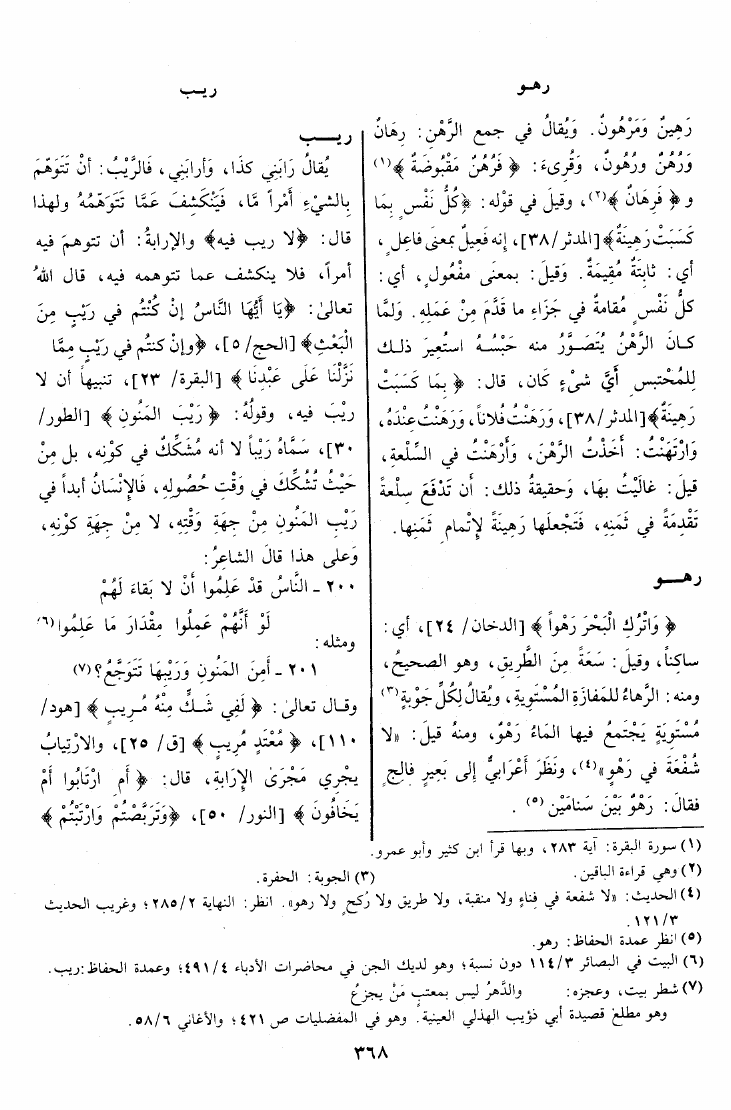 رهـو
ريـب
رَهِينٌ وَمَرْهُونٌ. وَيُقالُ في جمع الرَّهْنِ: رِهَانٌ
وَرُهُنٌ ورُهُونٌ، وَقُرىءَ: ﴿ فَرُهُنٌ مَقْبُوضَةٌ ﴾(١)
و﴿ فَرِهَانٌ ﴾(٢)، وقيلَ في قوْله: ﴿كُلُّ نَفْسٍ بِمَا
كَسَبَتْ رَهِينَةٌ﴾[المدثر/٣٨]، إنه فَعِيلٌ بمعنى فاعلٍ،
أي: ثابتَةٌ مُقِيمَةٌ. وَقيلَ: بمعنى مفْعُولٍ، أي:
كلُّ نَفْسٍ مُقامةٌ في جَزَاءِ ما قدَّمَ مِنْ عَمَلِهِ. وَلمَّا
كـانَ الرَّهْنُ يُتَصَوَّرُ منه حَبْسُـهُ استُعيرَ ذلـك
لِلمُحْتبِسِ أيَّ شىْءٍ كَان، قال: ﴿ بِمَا كَسَبَتْ
رَهِينَةٌ﴾[المدثر/٣٨]، وَرَهَنْتُ فُلاناً، وَرَهَنْتُ عِنْدَهُ،
وَارْتَهَنْتُ: أَخَذْتُ الرَّهْنَ، وَأَرْهَنْتُ في السِّلْعةِ،
قيلَ: غَالَيْتُ بهَا، وَحقيقةُ ذلك: أن تَدْفَعَ سِلْعةً
تَقْدِمَةً في ثَمَنِه، فَتَجْعلَها رَهِينَةً لِإِتْمامِ ثَمَنِها.
رهـــو
﴿ وَاتْرُكِ الْبَحْرَ رَهْواً ﴾ [الدخان/ ٢٤]، أي:
ساكِناً، وقيلَ: سَعَةً مِنَ الطَّرِيقِ، وهو الصحيحُ،
ومنه: الرَّهاءُ للمَفازَةِ المُسْتَوِيةِ، ويُقالُ لِكُلِّ جَوْبةٍ(٣)
مُسْتَوِيَةٍ يَجْتَمعُ فيها المَاءُ رَهْوٌ، ومنهُ قيلَ: «لا
شُفْعَةَ في رَهْوٍ»(٤)، ونَظَرَ أعْرَابيٌّ إلى بَعِيرٍ فالِجٍ
فقالَ: رَهْوٌ بَيْنَ سَنامَيْنِ(٥) .
ريـــب
يُقالُ رَابَنِي كذَا، وَأَرابَنِي، فَالرَّيْبُ: أنْ تَتَوَهَّمَ
بِالشيْءِ أَمْراً مَّا، فَيَنْكَشِفَ عَمَّا تَتَوَهَّمُهُ ولهذا
قال: ﴿لا ريب فيه﴾ والإرابةُ: أن تتوهمَ فيه
أمراً، فلا ينكشف عما تتوهمه فيه، قال اللهُ
تعالىٰ: ﴿يَا أَيُّهَا النَّاسُ إنْ كُنْتُم في رَيْبٍ مِنَ
الْبَعْثِ﴾ [الحج/٥]، ﴿وإن كنتم في رَيْبٍ مِمَّا
نَزَّلْنَا عَلَى عَبْدِنَا ﴾ [البقرة/ ٢٣]، تنبيهاً أن لا
ريْبَ فيه، وقولُهُ: ﴿ رَيْبَ المَنُونِ ﴾ [الطور/
٣٠]، سَمَّاهُ رَيْباً لا أنه مُشَكِّكٌ في كوْنِه، بل مِنْ
حَيْثُ تُشُكِّكَ في وَقْتِ حُصُولِهِ، فَالإِنْسَانُ أبداً في
رَيْبِ المَنُونِ مِنْ جهةِ وَقْتِه، لا مِنْ جِهةِ كوْنِه،
وَعلى هذا قالَ الشاعِرُ:
٢٠٠ ـ النَّاسُ قدْ عَلِمُوا أنْ لا بَقاءَ لَهُمْ
لَوْ أنَّهُمْ عَمِلُوا مِقْدَارَ مَا عَلِمُوا(٦)
ومثله:
٢٠١ ـ أَمِنَ المَنُونِ وَرَيْبِهَا تَتَوَجَّعُ؟(٧)
وقـال تعالىٰ: ﴿ لَفِي شَـكٍّ مِنْهُ مُـرِيبٍ ﴾ [هود/
١١٠]، ﴿ مُعْتَدٍ مُرِيبٍ ﴾ [ق/ ٢٥]، والارْتِيَابُ
يجْرِي مَجْرَى الإرَابَةِ، قالَ: ﴿ أَمِ ارْتَابُوا أَمْ
يَخَافُونَ ﴾ [النور/ ٥٠]، ﴿وَتَرَبَّصْتُم وَارْتَبْتُمْ ﴾
(١) سورة البقرة: آية ٢٨٣، وبها قرأ ابن كثير وأبو عمرو.
(٢) وهي قراءة الباقين.
(٣) الجوبة: الحفرة.
(٤) الحديث: «لا شفعة في فِناءٍ ولا منقبة، ولا طريق ولا رُكحٍ ولا رهو». انظر: النهاية ٢/ ٢٨٥؛ وغريب الحديث
٣/ ١٢١.
(٥) انظر عمدة الحفاظ: رهو.
(٦) البيت في البصائر ٣/ ١١٤ دون نسبة؛ وهو لديك الجن في محاضرات الأدباء ٤/ ٤٩١؛ وعمدة الحفاظ:ريب.
(٧) شطر بيت، وعجزه: والدَّهرُ ليس بمعتبٍ مَنْ يجزعُ
وهو مطلع قصيدة أبي ذؤيب الهذلي العينية. وهو في المفضليات ص ٤٢١؛ والأغاني ٦/ ٥٨.
٣٦٨